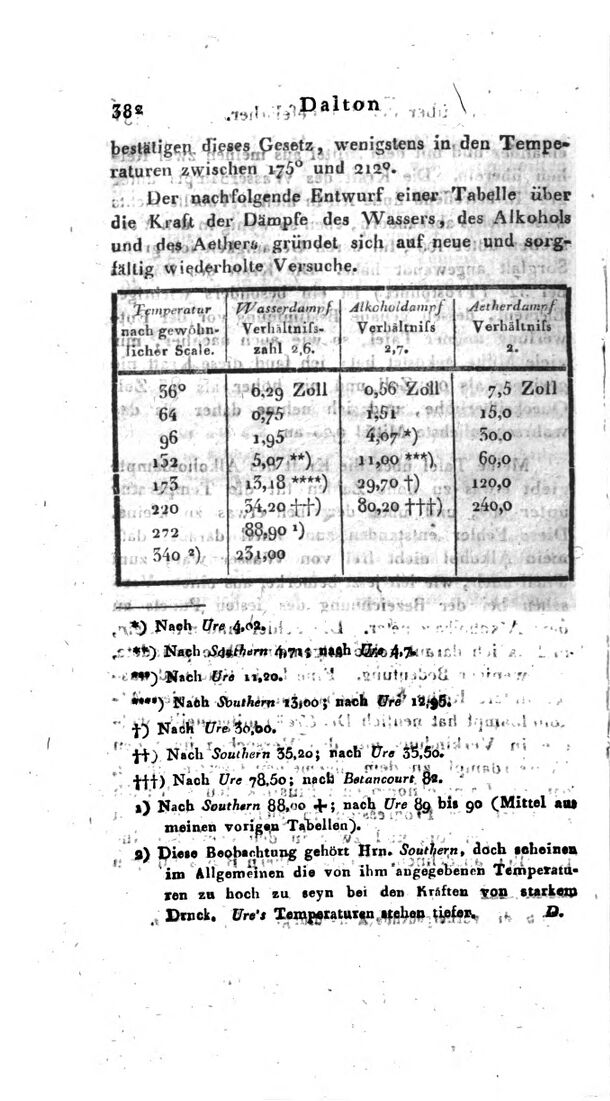 382 Dalton
bestätigen dieses Gesetz, wenigstens in den Tempe-
raturen zwischen 175° und 212°.
Der nachfolgende Entwurf einer Tabelle über
die Kraft der Dämpfe des Wassers, des Alkohols
und des Aethers gründet sich auf neue und sorg-
fältig wiederholte Versuche.
Temperatur Wasserdampf Alkoholdampf Aetherdampf
nach gewöhn- Verhältniſs- Verhältniſs Verhältniſs
licher Scale. zahl 2,6. 2,7. 2.
36° 0,29 Zoll 0,56 Zoll 7,5 Zoll
64 0,75 1,51 15,0
96 1,95 4,07 *) 30,0
132 5,07 **) 11,00 ***) 60,0
173 13,18 ****) 29,70 †) 120,0
220 34,20 ††) 80,20 †††) 240,0
272 88,90 1)
340 2) 231,00
*) Nach Ure 4,02.
**) Nach Southern 4,71; nach Ure 4,7.
***) Nach Ure 11,20.
****) Nach Southern 13,00; nach Ure 12,95.
†) Nach Ure 30,00.
††) Nach Southern 35,20; nach Ure 35,50.
†††) Nach Ure 78,50; nach Betancourt 82.
1) Nach Southern 88,00 +; nach Ure 89 bis 90 (Mittel aus
meinen vorigen Tabellen).
2) Diese Beobachtung gehört Hrn. Southern, doch scheinen
im Allgemeinen die von ihm angegebenen Temperatu-
ren zu hoch zu seyn bei den Kräften von starkem
Druck. Ure's Temperaturen stehen tiefer. D.